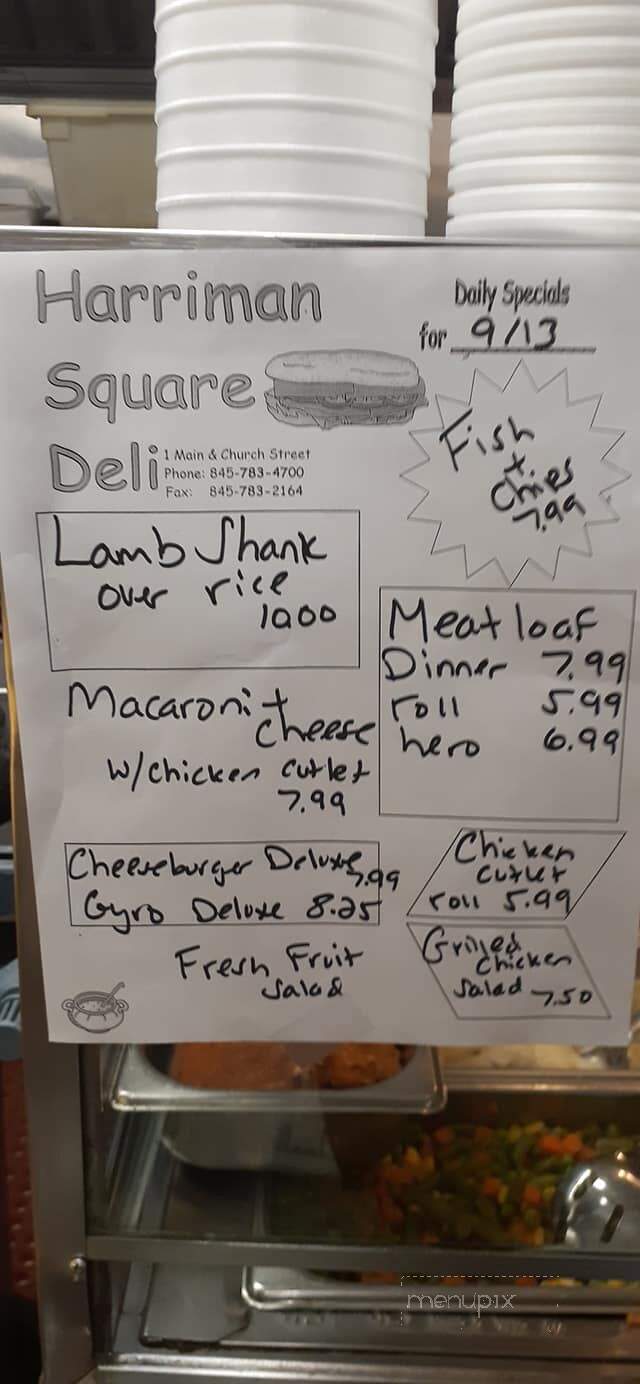 Harriman
Square
Deli
1 Main & Church Street
Phone: 845-783-4700
Fax: 845-783-2164
Daily Specials
for 9/13
Fish
+
Chips
7.99
Lamb Shank
over rice
10.00
Meat loaf
Dinner 7.99
roll 5.99
hero 6.99
Macaroni +
cheese
w/chicken cutlet
7.99
Cheeseburger Deluxe 7.99
Gyro Deluxe 8.25
Chicken
cutlet
roll 5.99
Fresh Fruit
salad
Grilled
chicken
salad 7.50
menupix